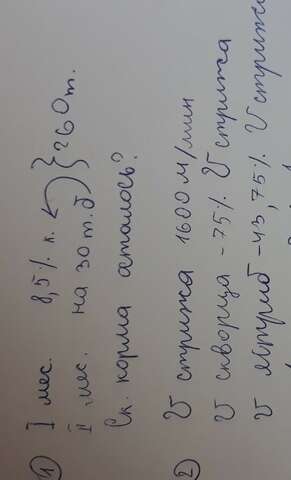 1) I мес. 8,5% к. } 260 т.
II мес. на 30 т. б
Ск. корма осталось?
2) V стрижа 1600 м/мин
V скворца - 75% V стрижа
V ястреб - 43,75% V стрижа